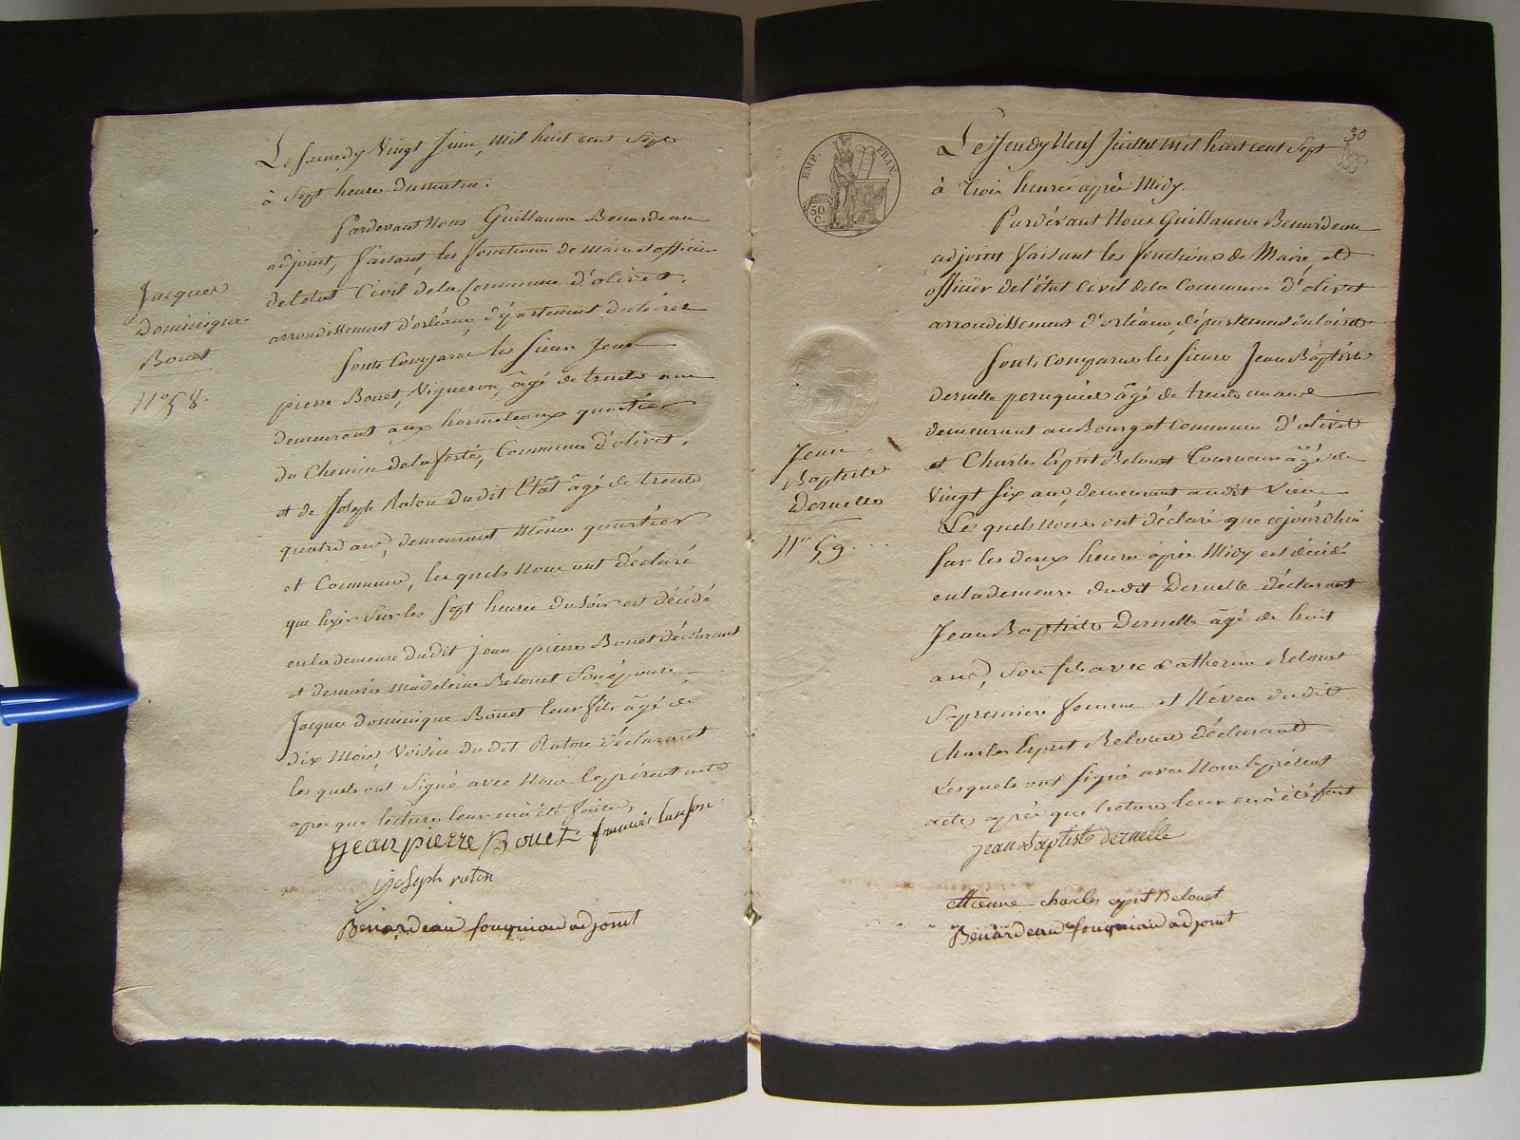 Le samedy Vingt Juin, mil huit cent sept
à sept heures du matin.
Pardevant Nous Guillaume Benardeau
adjoint, faisant les fonctions de maire et officier
de letat Civil de la Commune d'olivet,
arrondissement d'orléans, département du loiret
Sont Comparus les sieurs Jean
pierre Bouet, Vigneron, âgé de trente ans
demeurant aux hormeteaux quartier
du Chemin de la ferté, Commune d'olivet,
et de Joseph Raton dudit Etat âgé de trente
quatre ans, demeurant même quartier
et Commune, lesquels Nous ont déclaré
que hyer sur les sept heures du soir est décédé
en la demeure dudit jean pierre Bouet déclarant
et de marie Madeleine Belouet son épouse,
Jacques Dominique Bouet leur fils âgé de
dix mois, Voisin dudit Raton déclarant
lesquels ont signé avec Nous le présent acte
après que lecture leur en à été faite,
Jacques
Dominique
Bouet
N° 58.
jean pierre Bouet
joseph raton
Benardeau fouqniau adjoint
30
EMP. FRAN.
50 C.
Le Jeudy Neuf Juillet mil huit cent sept
à trois heures après Midy.
Pardevant Nous Guillaume Benardeau
adjoint faisant les fonctions de Maire et
officier de l'état civil de la Commune d'olivet
arrondissement d'orléans, département du loiret
Sont comparus les sieurs Jean Baptiste
Deruelle peruquier âgé de trente un ans
demeurant au Bourg et commune d'olivet
et Charles Esprit Belouet Tourneur âgé de
Vingt six ans, demeurant audit Lieu
Lesquels Nous ont déclaré que cejourd'hui
sur les deux heures après Midy est décédé
en la demeure dudit Deruelle déclarant
Jean Baptiste Deruelle âgé de huit
ans, son fils avec Catherine Belouet
sa premiere femme et Neveu dudit
Charles Esprit Belouet déclarant
Lesquels ont signé avec Nous le présent
acte après que lecture leur en à été fait
Jean
Baptiste
Deruelle
N° 59.
jean Baptiste deruelle
etienne charles esprit Belouet
Benardeau fouqniau adjoint